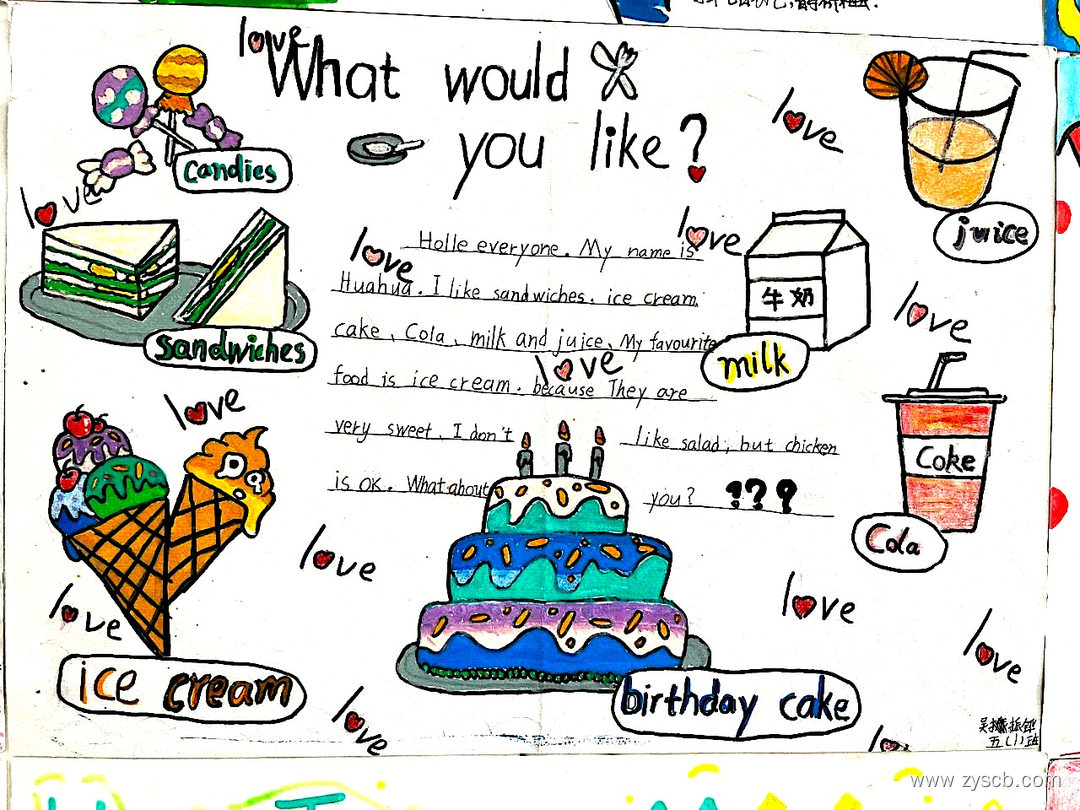 love
What would
you like?
love
candies
love
juice
sandwiches
love
love
Holle everyone. My name is
Huahua. I like sandwiches. ice cream
cake、Cola、milk and juice、My favourite
food is ice cream. because They are
very sweet、I don't like salad, but chicken
is OK. What about you? ???
love
牛奶
milk
love
Coke
Cola
love
ice cream
love
love
love
birthday cake
love
love
love
五(1)班
www.zyscb.com